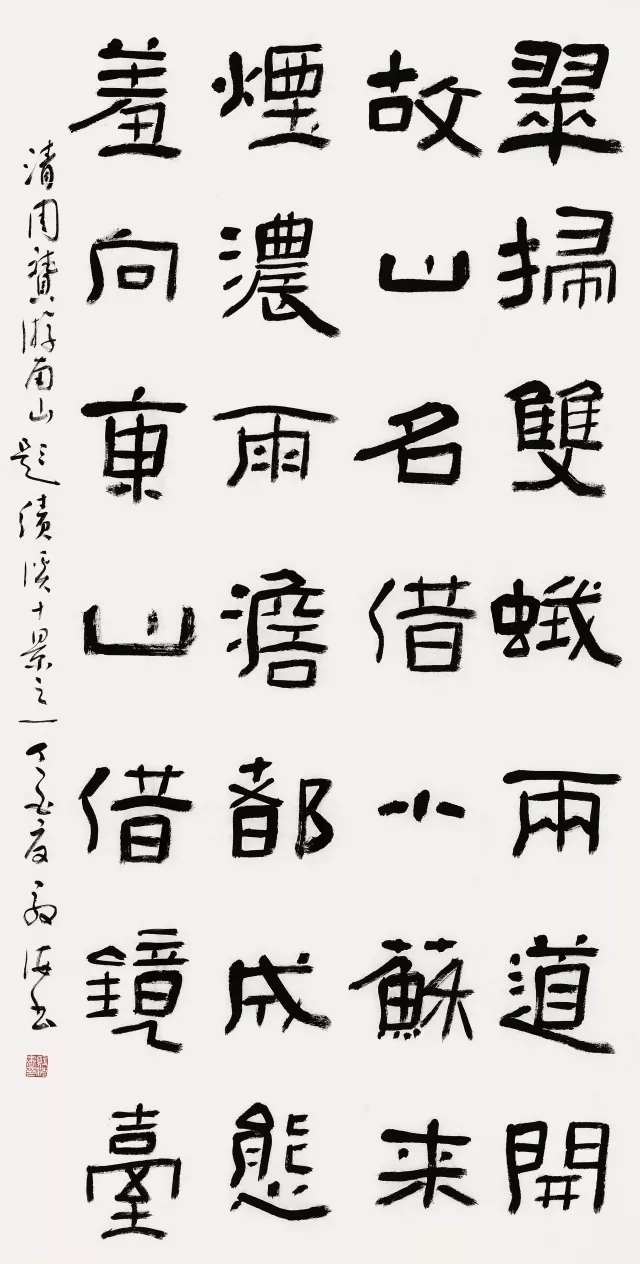 翠掃雙蛾兩道開
故山名借小蘇来
煙濃雨澹都成態
羞向東山借鏡臺
清周贇游南山題績溪十景之一